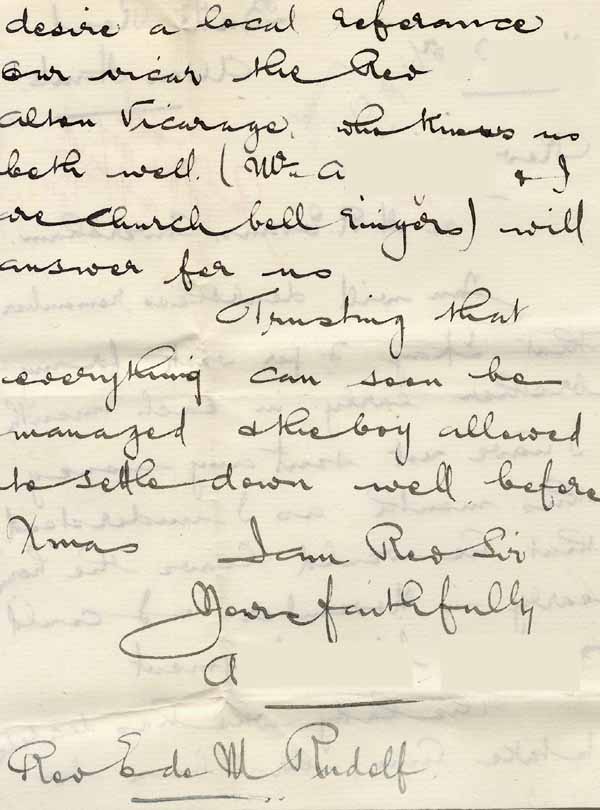 desire a local referance
our vicar the Rev
Alton Vicarage, who knows us
both well. (Mr. A & I
are Church bell ringers) will
answer for us
Trusting that
everything can soon be
managed & the boy allowed
to settle down well before
Xmas I am Rev Sir
Yours faithfully
A
Rev E de M Rudolf